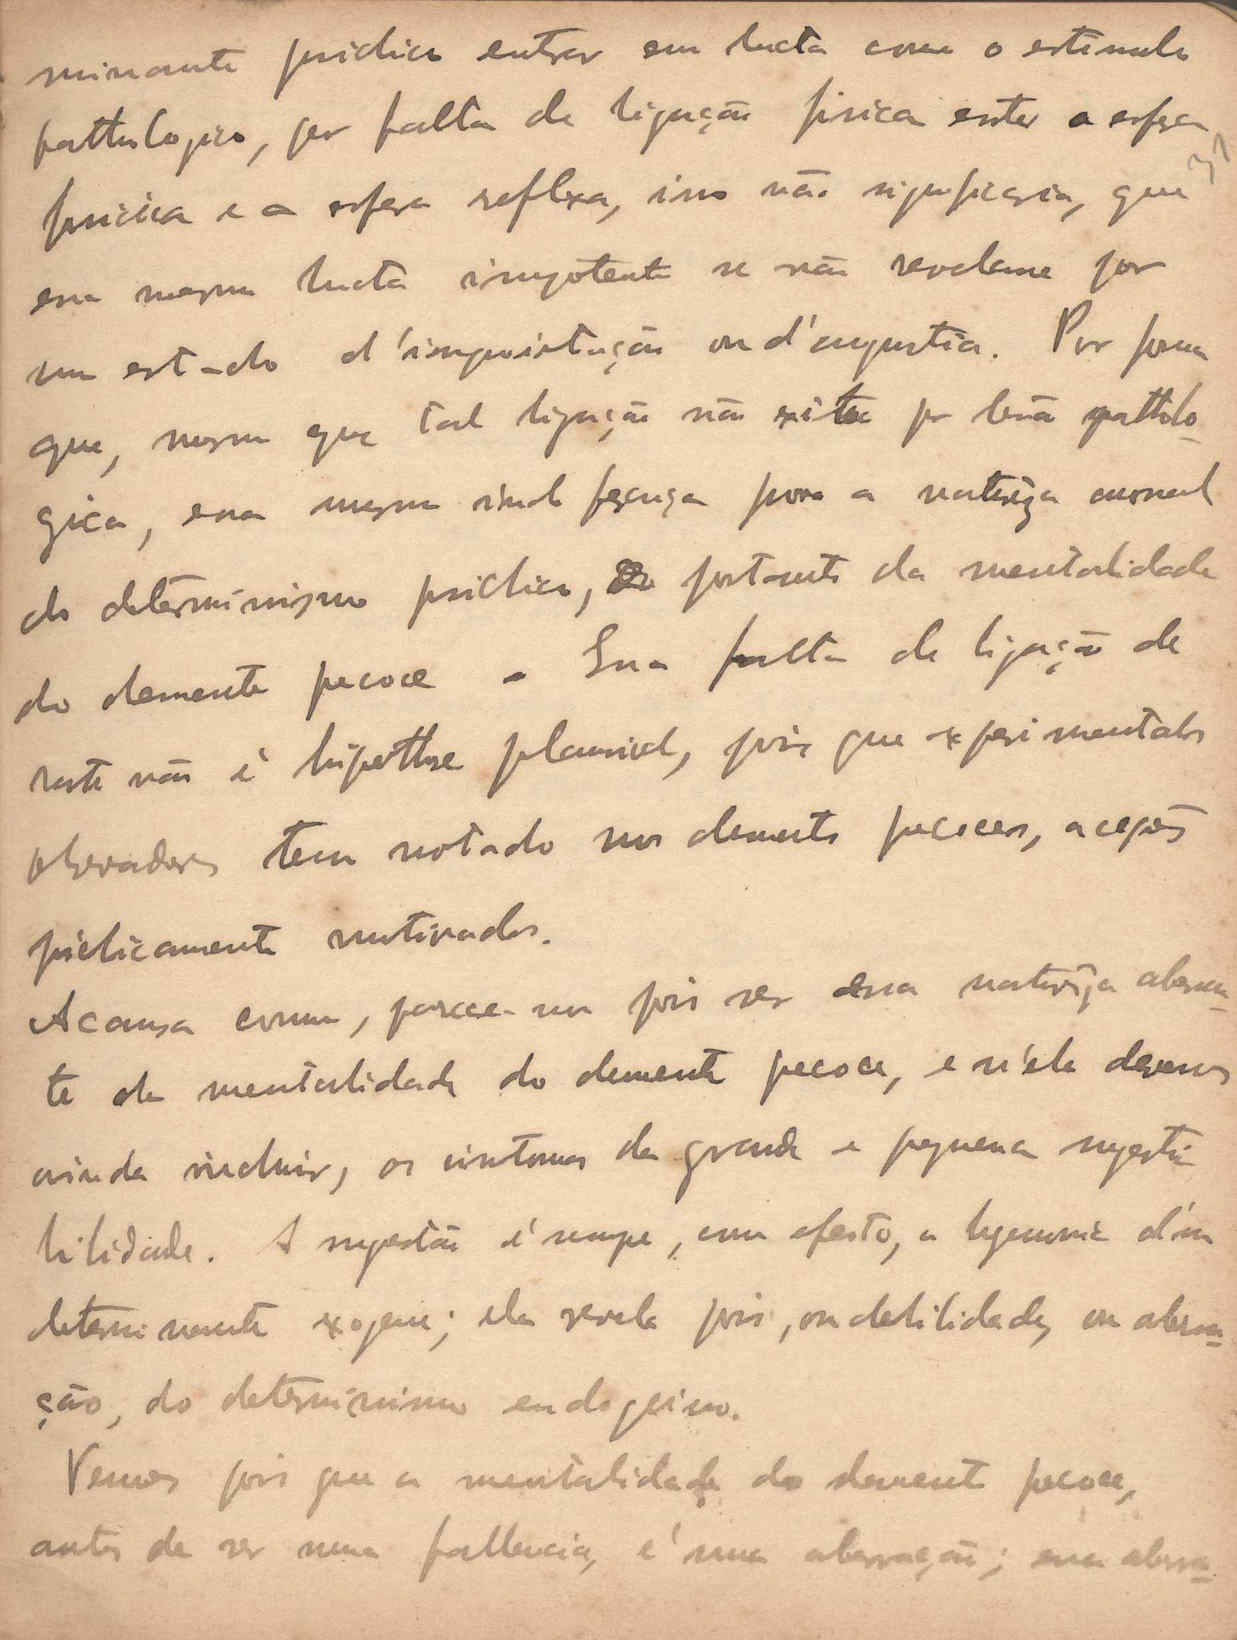 minante psichico entrar em lucta com o estimulo
pathologico, por falta de ligação fisica entre a esfera
psicica e a esfera reflexa, isso não significaria, que
essa mesma lucta impotente se não revelasse por
um estado d'inquietação ou d'angustia. Por forma
que, mesmo que tal ligação não exista por lesão patholo-
gica, essa mesma indifferença prova a natureza anormal
do determinismo psichico, portanto da mentalidade
do demente precoce. Essa falta de ligação de
resto não é hipothese plausivel, pois que experimentados
observadores tem notado nos dementes precoces, acções
psichicamente motivadas.
A causa comum, parece-nos pois ser essa natureza aberran-
te da mentalidade do demente precoce, e n'ela devemos
ainda incluir, os sintomas da grande e pequena sugesti
bilidade. A sugestão é sempre, com efeito, a hegemonia d'um
determinante exogeno; ela revela pois, ou debilidade, ou aberra-
ção, do determinismo endogeino.
Vemos pois que a mentalidade do demente precoce,
antes de ser uma fallencia, é uma aberração; essa aberra-